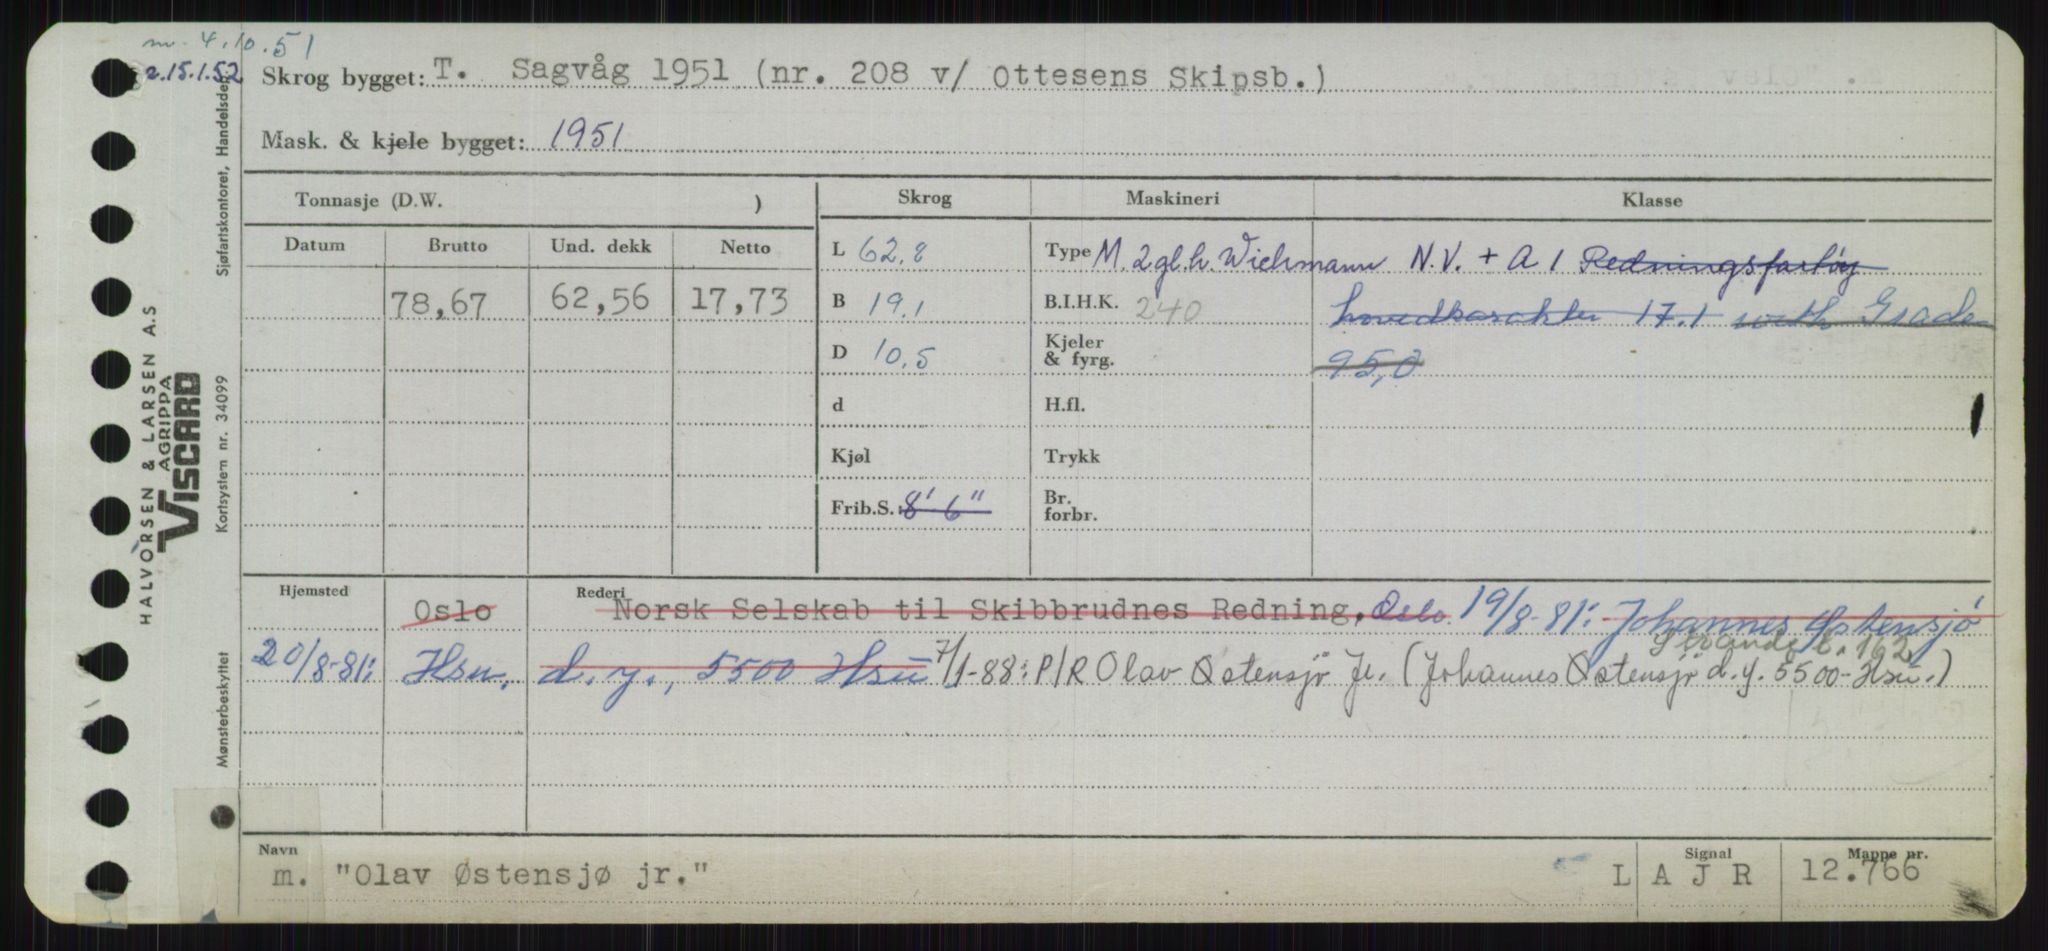 4.10.51
2.15.1.52
Skrog bygget: T. Sagvåg 1951 (nr. 208 v/ Ottesens Skipsb.)
Mask. & kjele bygget: 1951
Tonnasje (D.W. )
Skrog
Maskineri
Klasse
Datum
Brutto
Und. dekk
Netto
78,67
62,56
17,73
L 62,8
B 19.1
D 10.5
d
Kjøl
Frib.S. 8' 6"
Type M. 2 gl.h. Wichmann
B.I.H.K. 240
Kjeler
& fyrg.
H.fl.
Trykk
Br.
forbr.
N.V. + A 1 Redningsfartøy
hovedkarakter 17.1 with Grade
95,0
Hjemsted
Rederi
Oslo
Norsk Selskab til Skibbrudnes Redning, Oslo. 19/8-81: Johannes Østensjö
Strandgt. 162
20/8-81: Hsu. d. y., 5500 Hsu 7/1-88: P/R Olav Østensjö Jr. (Johannes Østensjö d.y. 5500-Hsu.)
Navn
m. "Olav Østensjø jr."
Signal
L A J R
Mappe nr.
12.766
HALVORSEN & LARSEN A.S
AGRIPPA
VISCARD
Sjøfartskontoret, Handelsdep.
Kortsystem nr. 34099
Mønsterbeskyttet